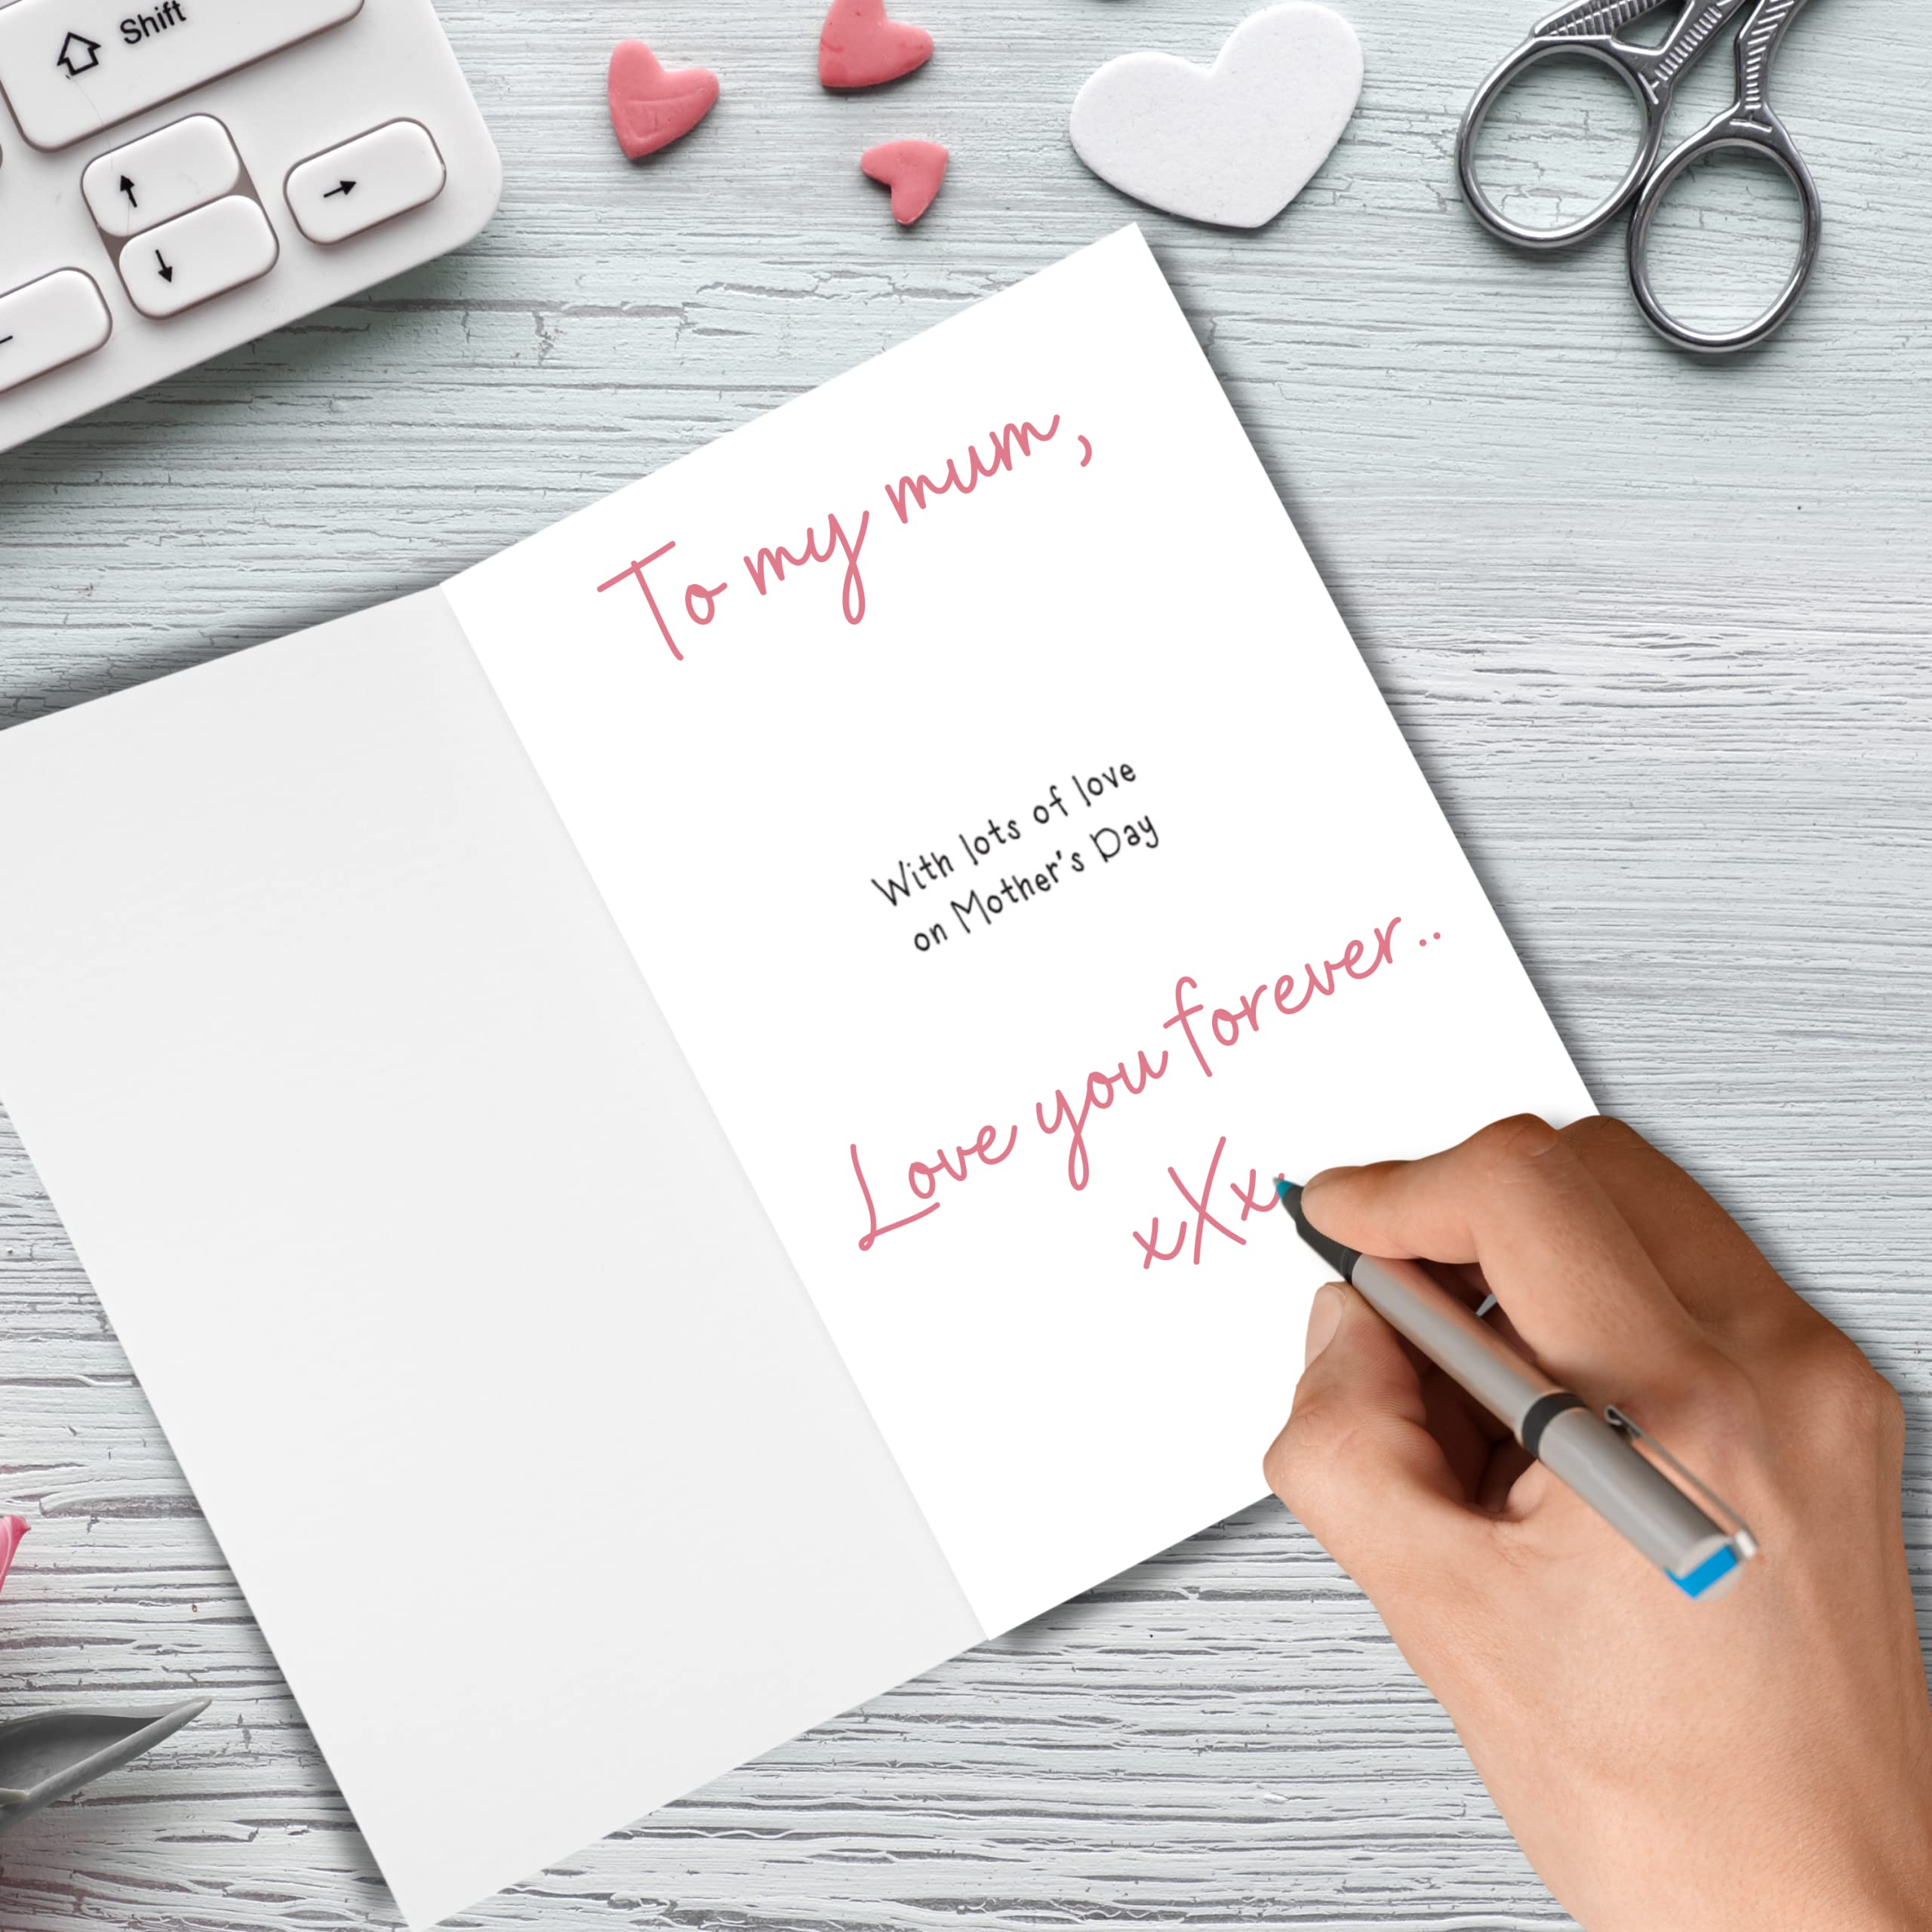 Shift
To my mum,
With lots of love
on Mother's Day
Love you forever..
xXx